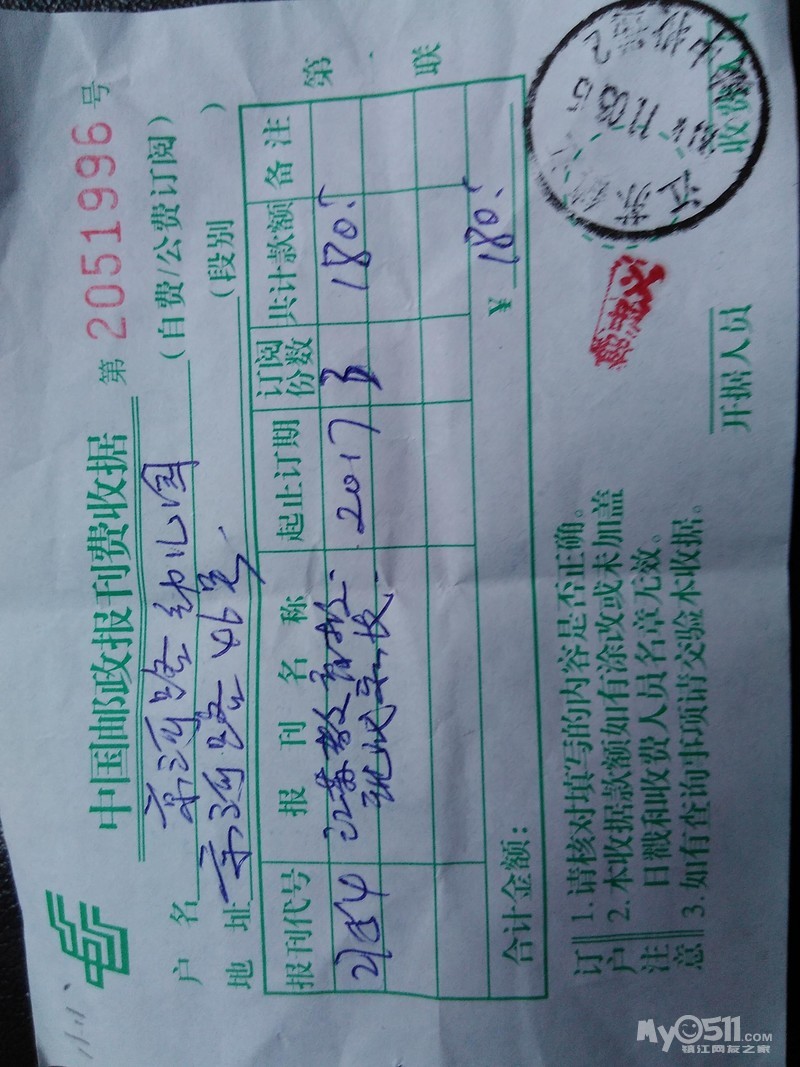 中国邮政报刊费收据
第 2051996 号
户 名 京河路幼儿园 (自费/公费订阅)
地 址 京河路 号 (段别 )
报刊代号 报 刊 名 称 起止订期 订阅份数 共计款额 备 注
江苏教育报 2017 3 180
合计金额: ¥ 180
第 一 联
订户注意
1. 请核对填写的内容是否正确。
2. 本收据款额如有涂改或未加盖
日戳和收费人员名章无效。
3. 如有查询事项请交验本收据。
开据人员
收费人员
My0511.COM
镇江网友之家